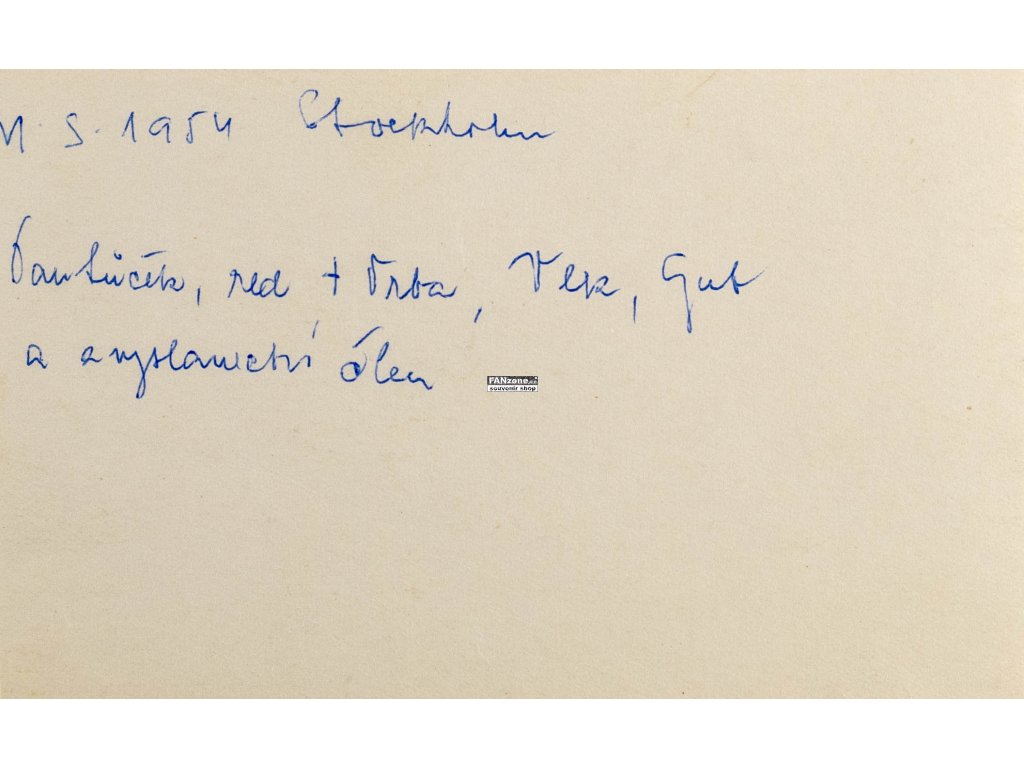 M.S. 1954 Stockholm
Pantůček, red + Vrba, Vlk, Gut
a vyslanectví člen
FANzone.cz
souvenir shop